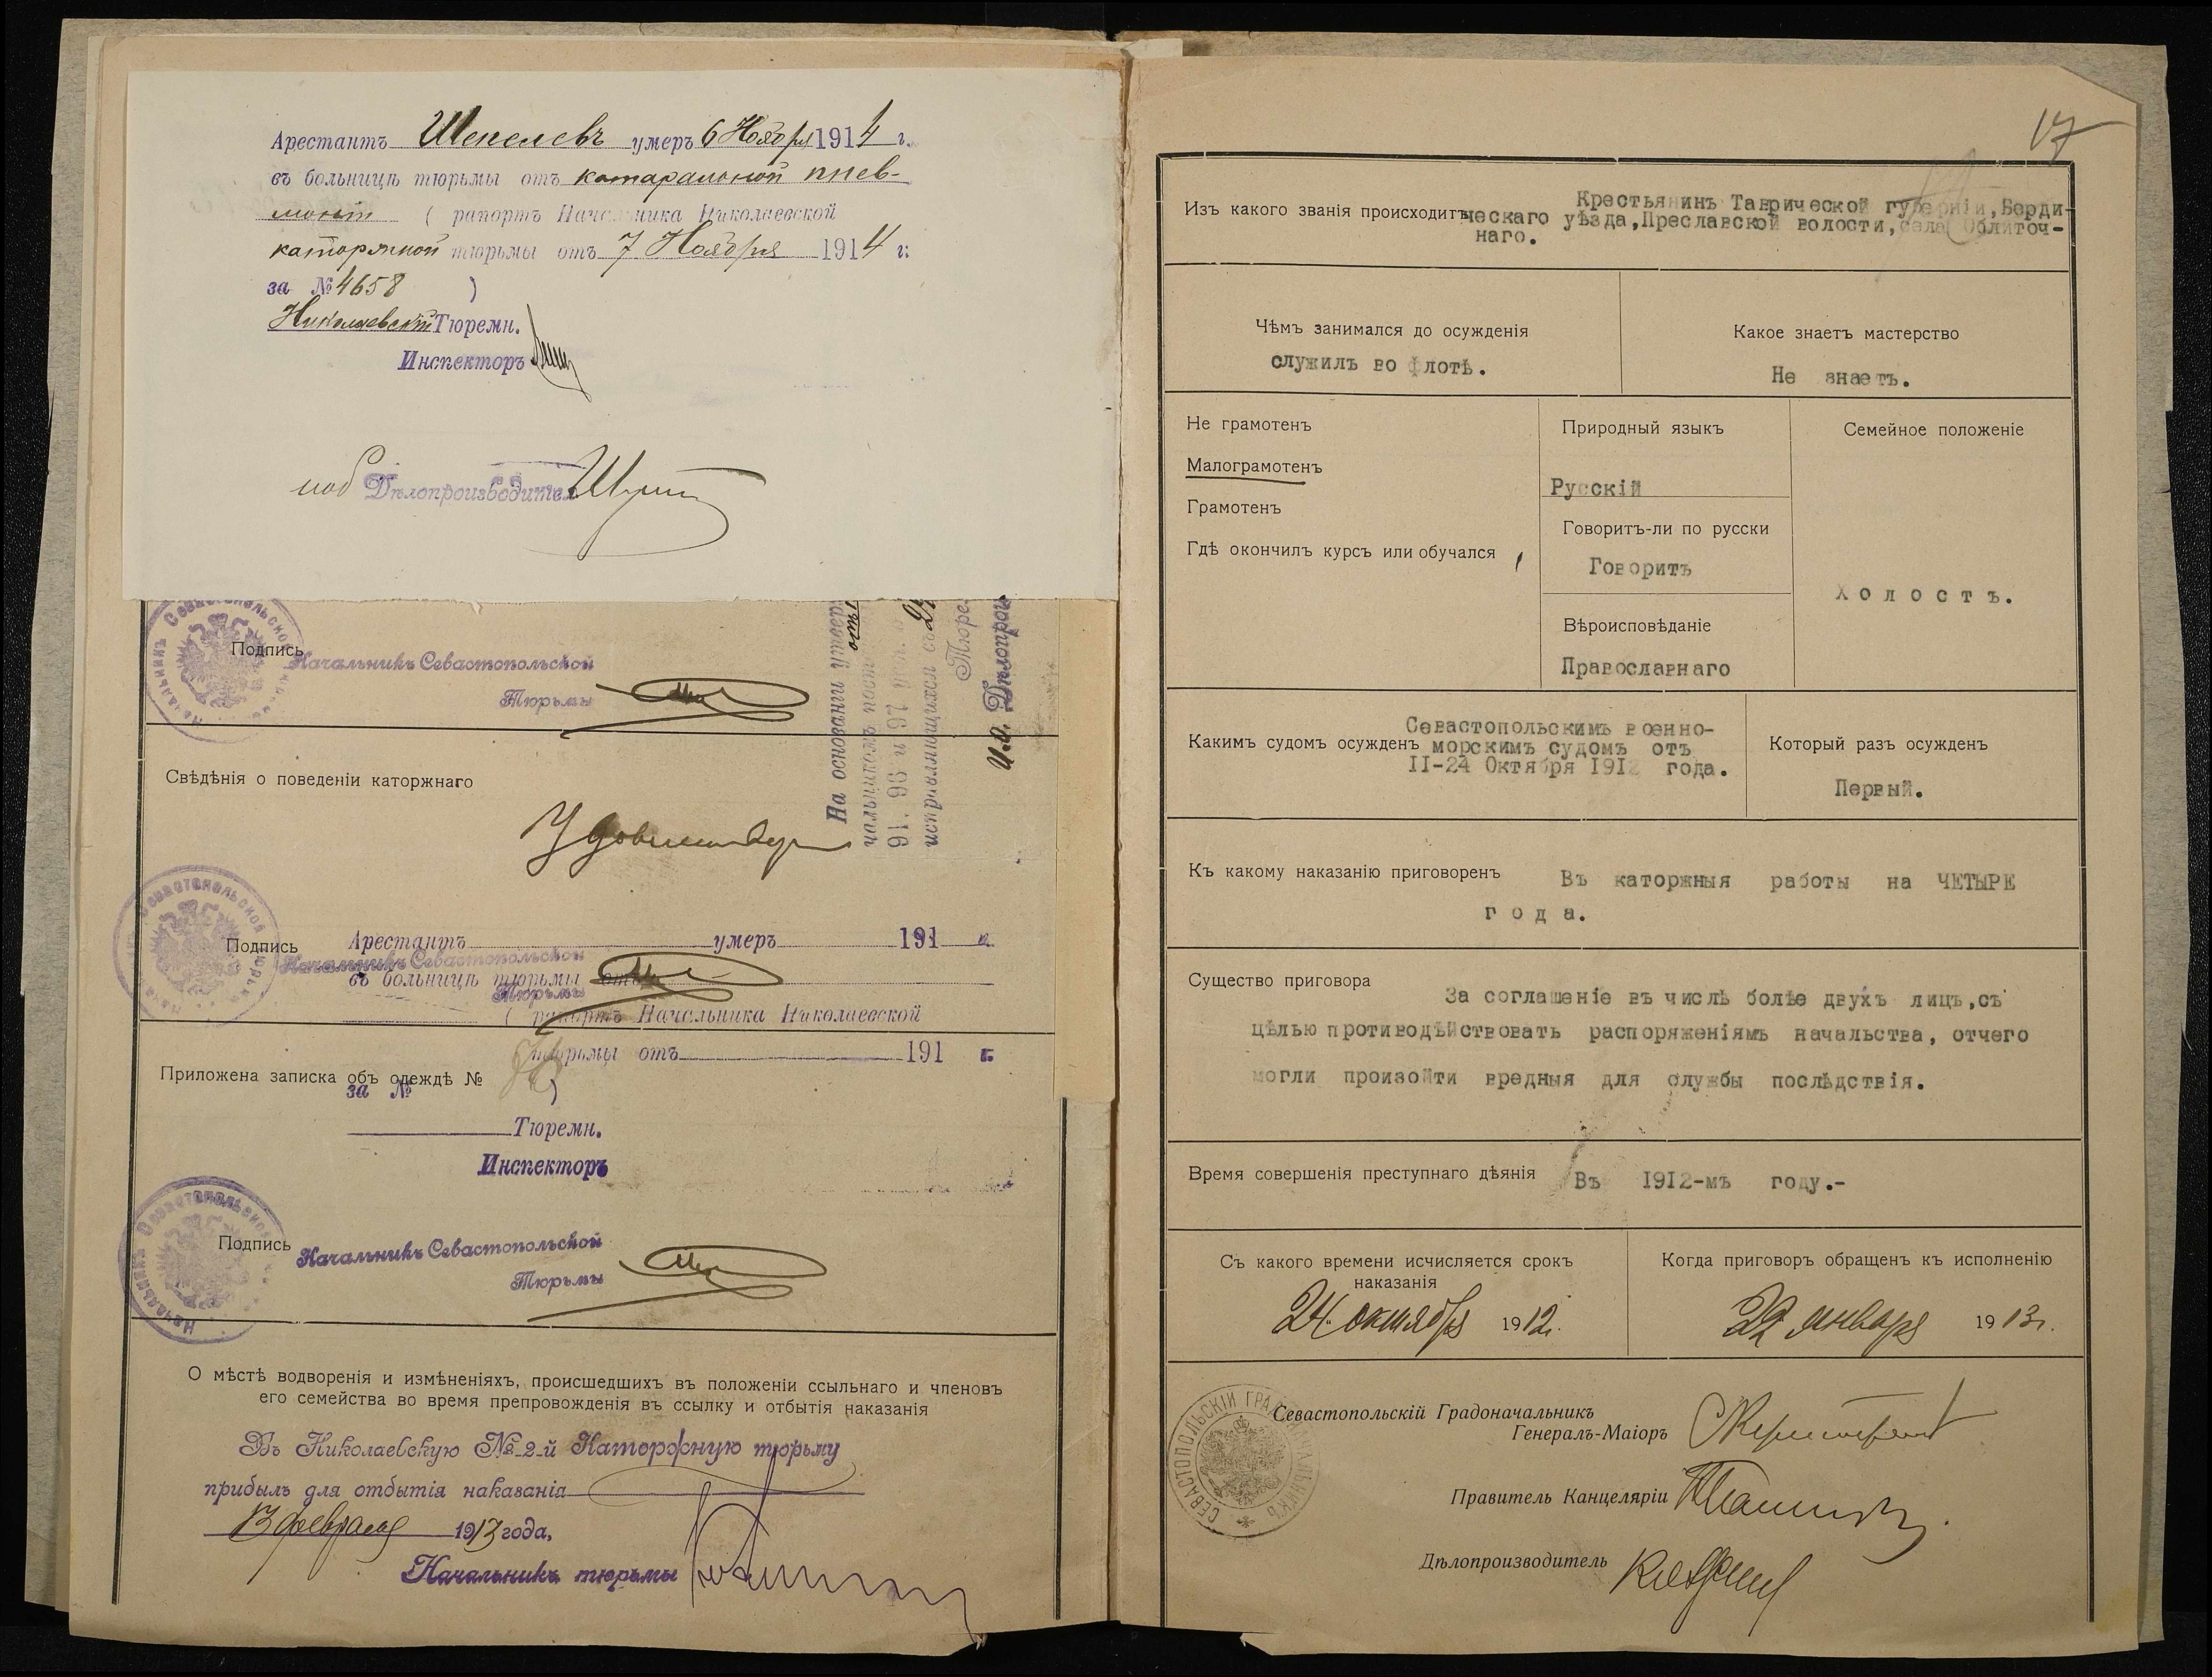 Арестантъ Шепелевъ умеръ 6 Ноября 1914 г.
въ больницѣ тюрьмы отъ катаральной пнев-
моніи ( рапортъ Начальника Николаевской
каторжной тюрьмы отъ 7 Ноября 1914 г.
за № 4658 )
Николаевскій Тюремн.
Инспекторъ
Дѣлопроизводител
Подпись
Начальникъ Севастопольской
Тюрьмы
На основаніи
91. 96 и 97
исправляющихся съ
Тюре
И.о. Дѣлопроиз
Свѣдѣнія о поведеніи каторжнаго
Удовлетвор
Подпись
Арестантъ умеръ 191 г.
Начальникъ Севастопольской
въ больницѣ тюрьмы отъ
Тюрьмы
( рапортъ Начальника Николаевской
тюрьмы отъ 191 г.
Приложена записка объ одеждѣ №
за № )
Тюремн.
Инспекторъ
Подпись
Начальникъ Севастопольской
Тюрьмы
О мѣстѣ водворенія и измѣненіяхъ, происшедшихъ въ положеніи ссыльнаго и членовъ
его семейства во время препровожденія въ ссылку и отбытія наказанія
Въ Николаевскую № 2-й Каторжную тюрьму
прибылъ для отбытія наказанія
13 февраля 1913 года,
Начальникъ тюрьмы
17
Изъ какого званія происходитъ
Крестьянинъ Таврической губерніи, Берди-
ческаго уѣзда, Преславской волости, села Облиточ-
наго.
Чѣмъ занимался до осужденія
служилъ во флотѣ.
Какое знаетъ мастерство
Не знаетъ.
Не грамотенъ
Малограмотенъ
Грамотенъ
Гдѣ окончилъ курсъ или обучался
Природный языкъ
Русскій
Говоритъ-ли по русски
Говоритъ
Вѣроисповѣданіе
Православнаго
Семейное положеніе
Холостъ.
Какимъ судомъ осужденъ
Севастопольскимъ военно-
морскимъ судомъ отъ
II-24 Октября 1912 года.
Который разъ осужденъ
Первый.
Къ какому наказанію приговоренъ
Въ каторжныя работы на ЧЕТЫРЕ
года.
Существо приговора
За соглашеніе въ числѣ болѣе двухъ лицъ, съ
цѣлью противодѣйствовать распоряженіямъ начальства, отчего
могли произойти вредныя для службы послѣдствія.
Время совершенія преступнаго дѣянія
Въ 1912-мъ году.-
Съ какого времени исчисляется срокъ
наказанія
24 октября 1912 г.
Когда приговоръ обращенъ къ исполненію
22 января 1913 г.
СЕВАСТОПОЛЬСКІЙ ГРАДОНАЧАЛЬНИКЪ
Севастопольскій Градоначальникъ
Генералъ-Маіоръ
Правитель Канцеляріи
Дѣлопроизводитель